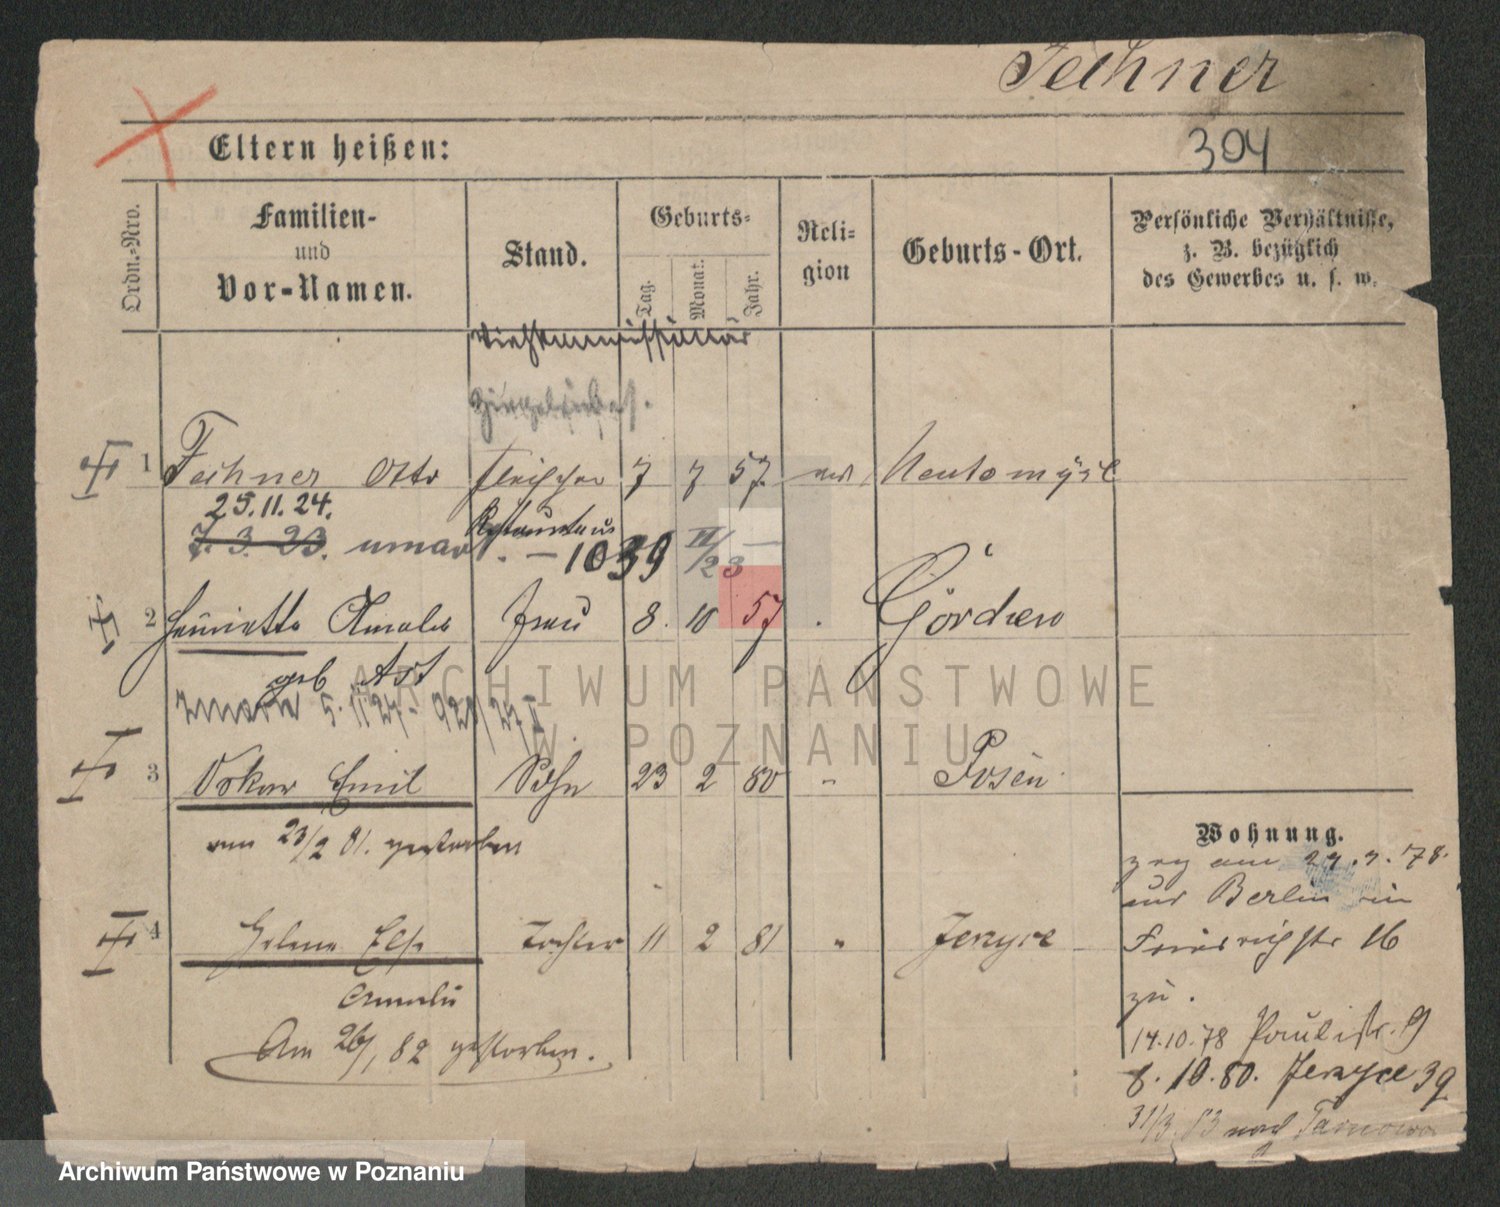 Fechner
304
Eltern heißen:
Ordn.-Nro.
Familien-
und
Vor-Namen.
Stand.
Geburts-
Tag.
Monat.
Jahr.
Reli-
gion
Geburts-Ort.
Persönliche Verhältnisse,
z. B. bezüglich
des Gewerbes u. s. w.
Viehkommissionär
1 Fechner Otto Fleischer 7 7 57. Neutomysl
25.11.24. Restaurateur
7. 3. 23. umarł. - 1039 II/23 -
2 Henriette Amalie Frau 8. 10 57 Górchen
geb Ast
zmarła 5. 11 27 - 921/27 II
3 Oskar Emil Sohn 23 2 80 " Posen
am 23/2 81. gestorben
Wohnung.
zog am 29.9.78.
aus Berlin in
4 Helene Else Tochter 11 2 81 " Jerzyce
Friedrichstr 16
Amalie
zu.
Am 26/1 82 gestorben.
14.10.78 Paulistr. 9
8.10.80. Jerzyce 39
31/3. 83 nach Tarnowo
ARCHIWUM PAŃSTWOWE
W POZNANIU
Archiwum Państwowe w Poznaniu